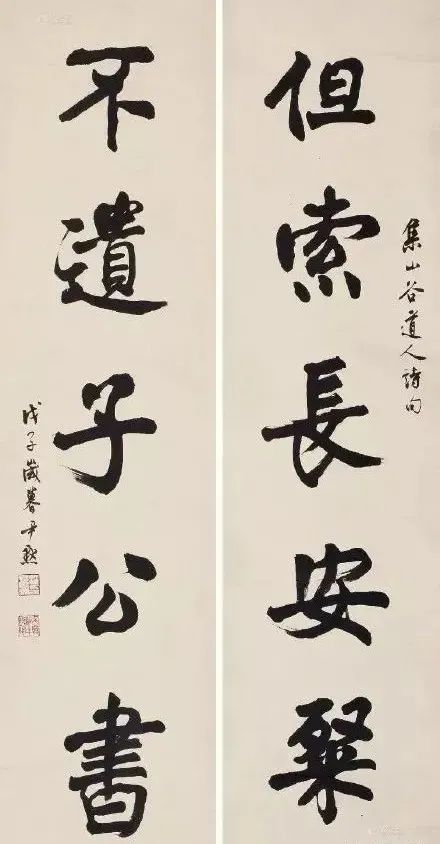 集山谷道人詩句
但索長安粲
不遺子公書
戊子歲暮尹默